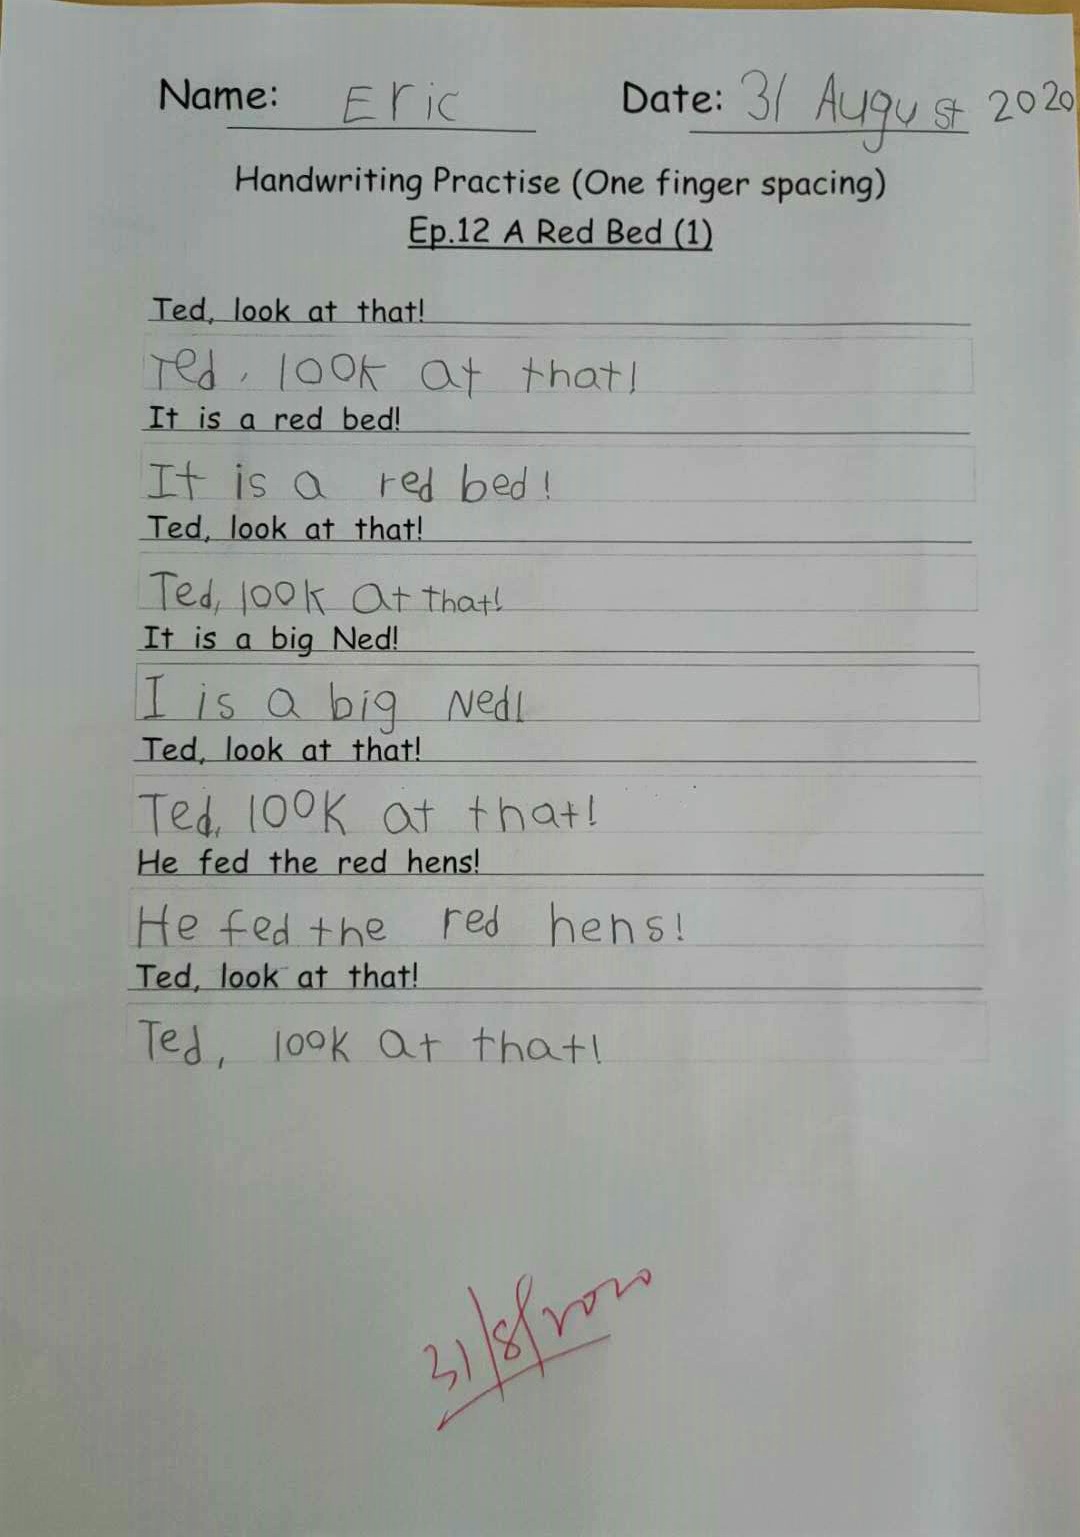 Name: Eric Date: 31 August 2020
Handwriting Practise (One finger spacing)
Ep.12 A Red Bed (1)
Ted, look at that!
Ted, look at that!
It is a red bed!
It is a red bed!
Ted, look at that!
Ted, look at that!
It is a big Ned!
I is a big Ned!
Ted, look at that!
Ted, look at that!
He fed the red hens!
He fed the red hens!
Ted, look at that!
Ted, look at that!
31/8/2020